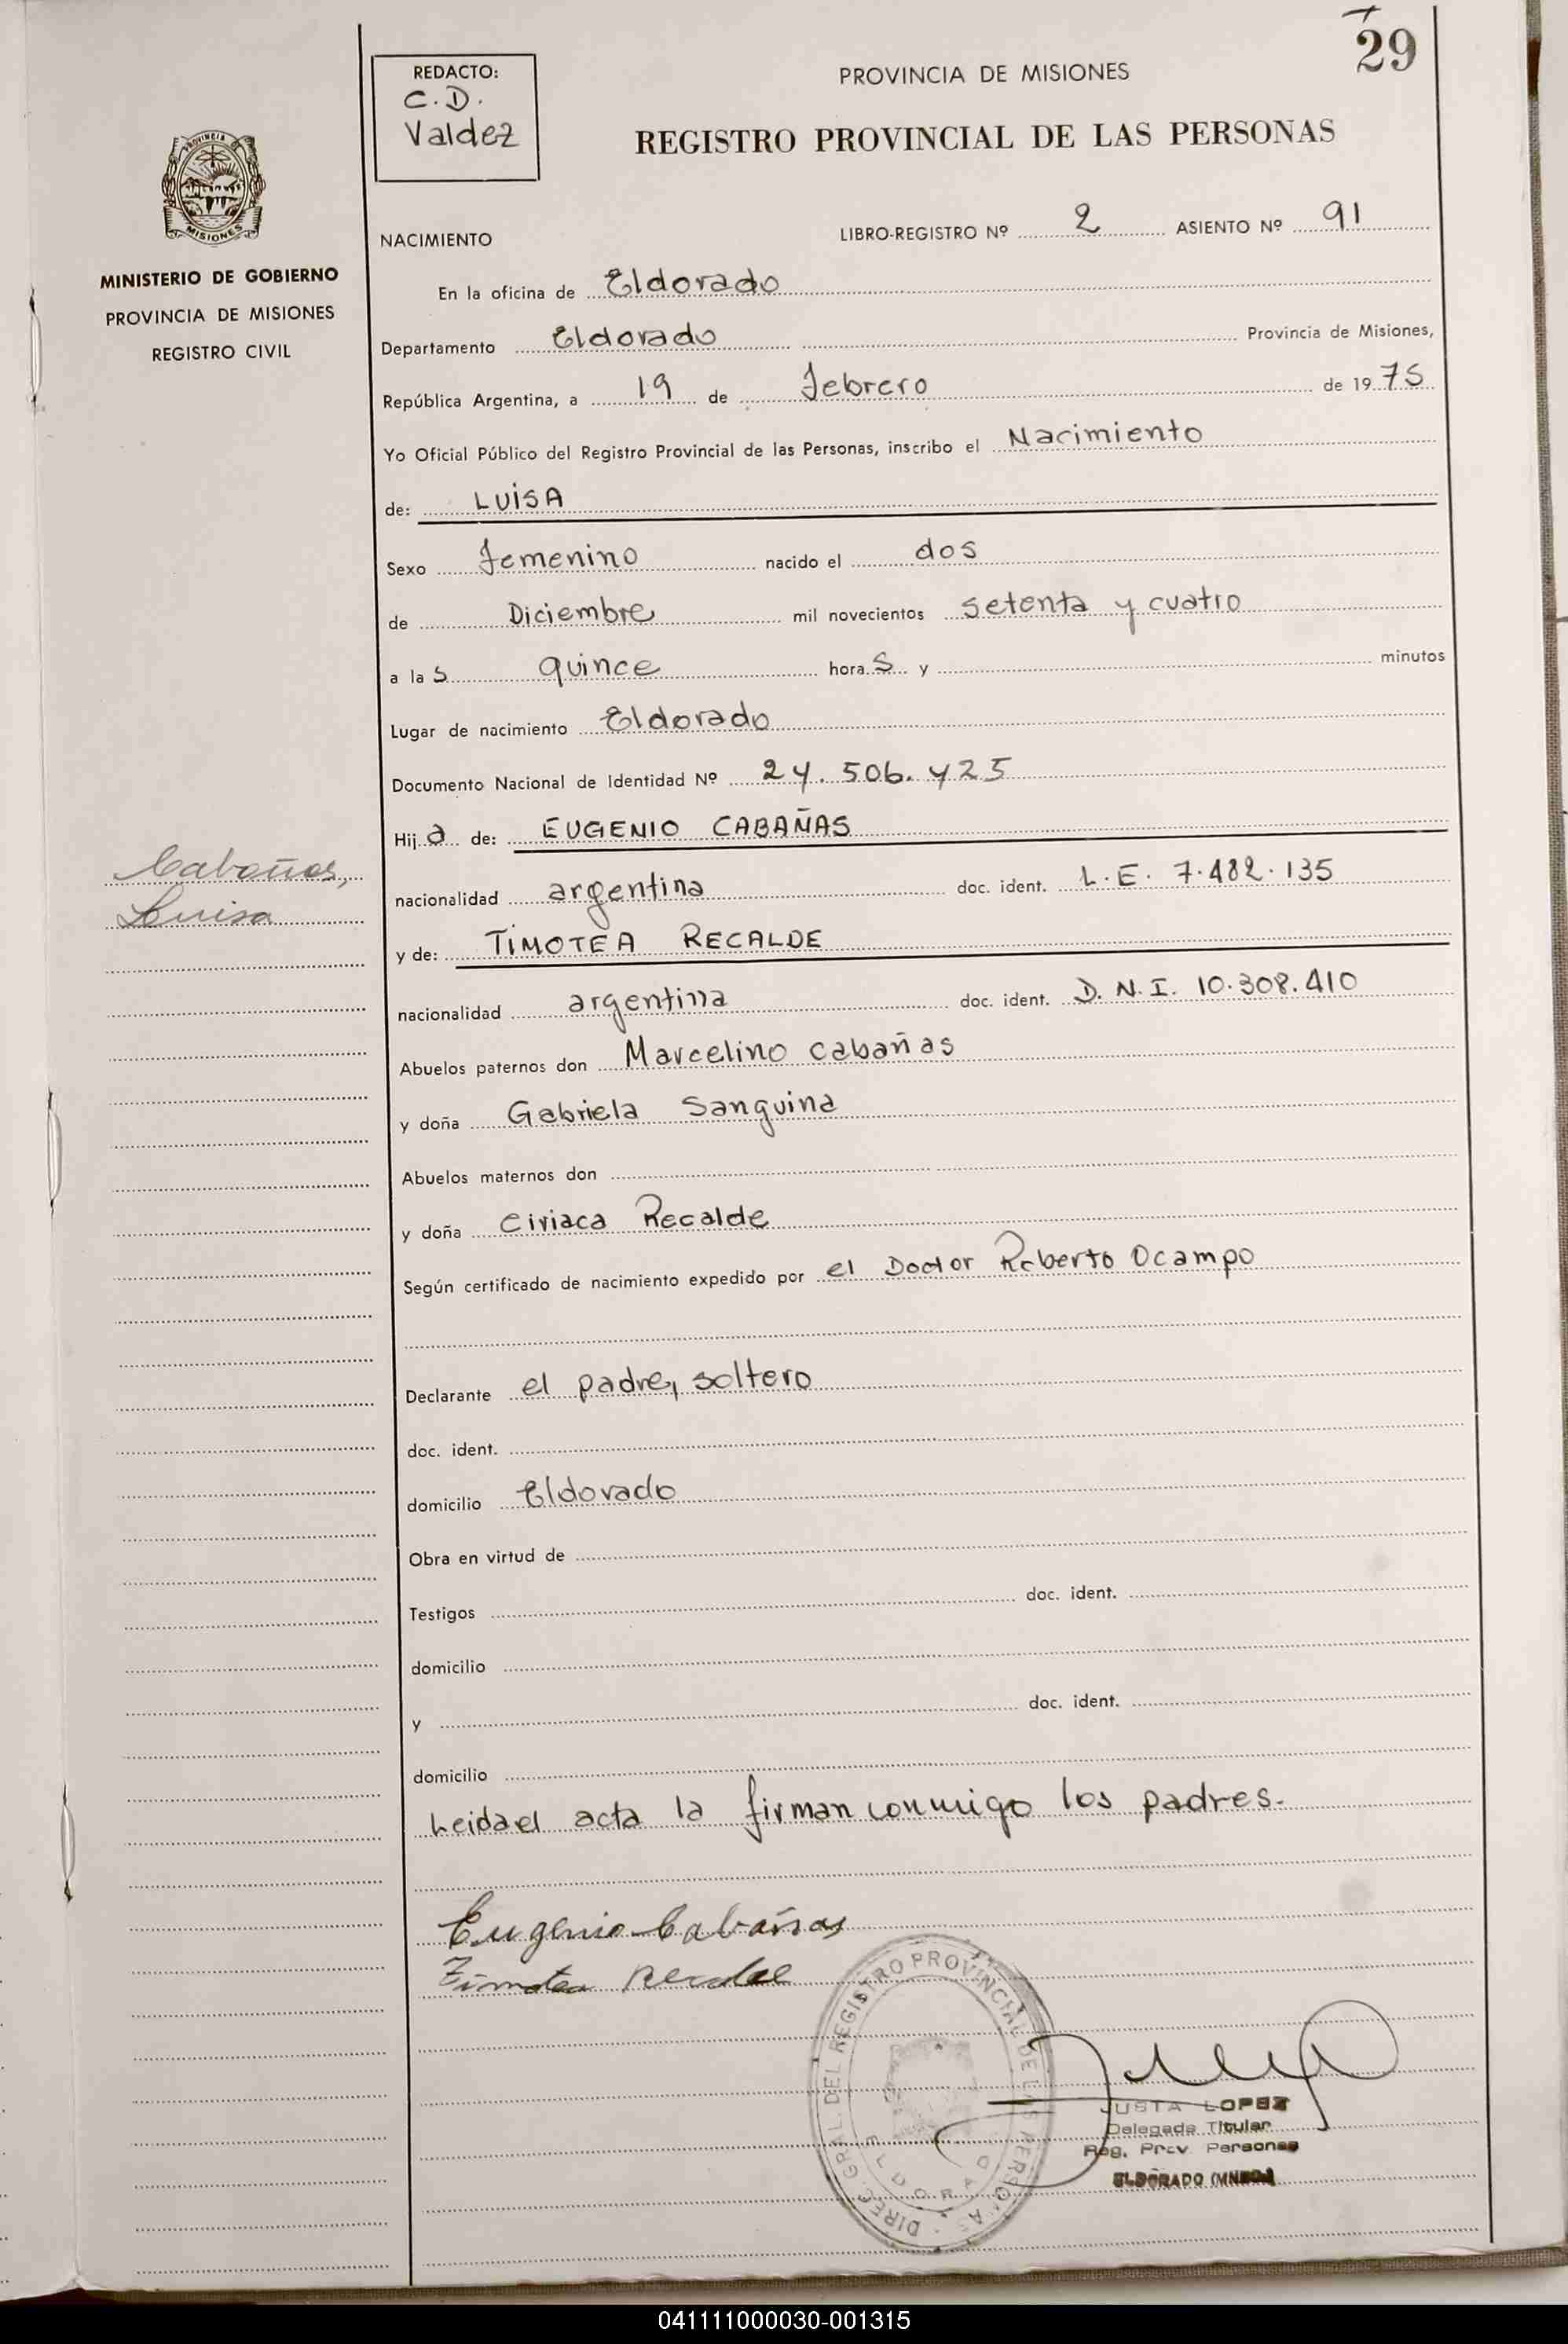 29
REDACTO:
C.D.
Valdez
PROVINCIA DE MISIONES
REGISTRO PROVINCIAL DE LAS PERSONAS
PROVINCIA DE
MISIONES
MINISTERIO DE GOBIERNO
PROVINCIA DE MISIONES
REGISTRO CIVIL
NACIMIENTO LIBRO-REGISTRO Nº 2 ASIENTO Nº 91
En la oficina de Eldorado
Departamento Eldorado Provincia de Misiones,
República Argentina, a 19 de febrero de 1975
Yo Oficial Público del Registro Provincial de las Personas, inscribo el Nacimiento
de: LUISA
Sexo femenino nacido el dos
de Diciembre mil novecientos setenta y cuatro
a las quince horas y minutos
Lugar de nacimiento Eldorado
Documento Nacional de Identidad Nº 24.506.425
Hija de: EUGENIO CABAÑAS
Cabañas,
Luisa
nacionalidad argentina doc. ident. L.E. 7.482.135
y de: TIMOTEA RECALDE
nacionalidad argentina doc. ident. D.N.I. 10.308.410
Abuelos paternos don Marcelino cabañas
y doña Gabriela Sanguina
Abuelos maternos don
y doña Ciriaca Recalde
Según certificado de nacimiento expedido por el Doctor Roberto Ocampo
Declarante el padre, soltero
doc. ident.
domicilio Eldorado
Obra en virtud de
Testigos doc. ident.
domicilio
y doc. ident.
domicilio
Leida el acta la firman conmigo los padres.
Eugenio Cabañas
Timotea Recalde
DIREC. GRAL. DEL REGISTRO PROVINCIAL DE LAS PERSONAS
ELDORADO
JUSTA LOPEZ
Delegada Titular
Reg. Prov. Personas
ELDORADO (MNES.)
041111000030-001315